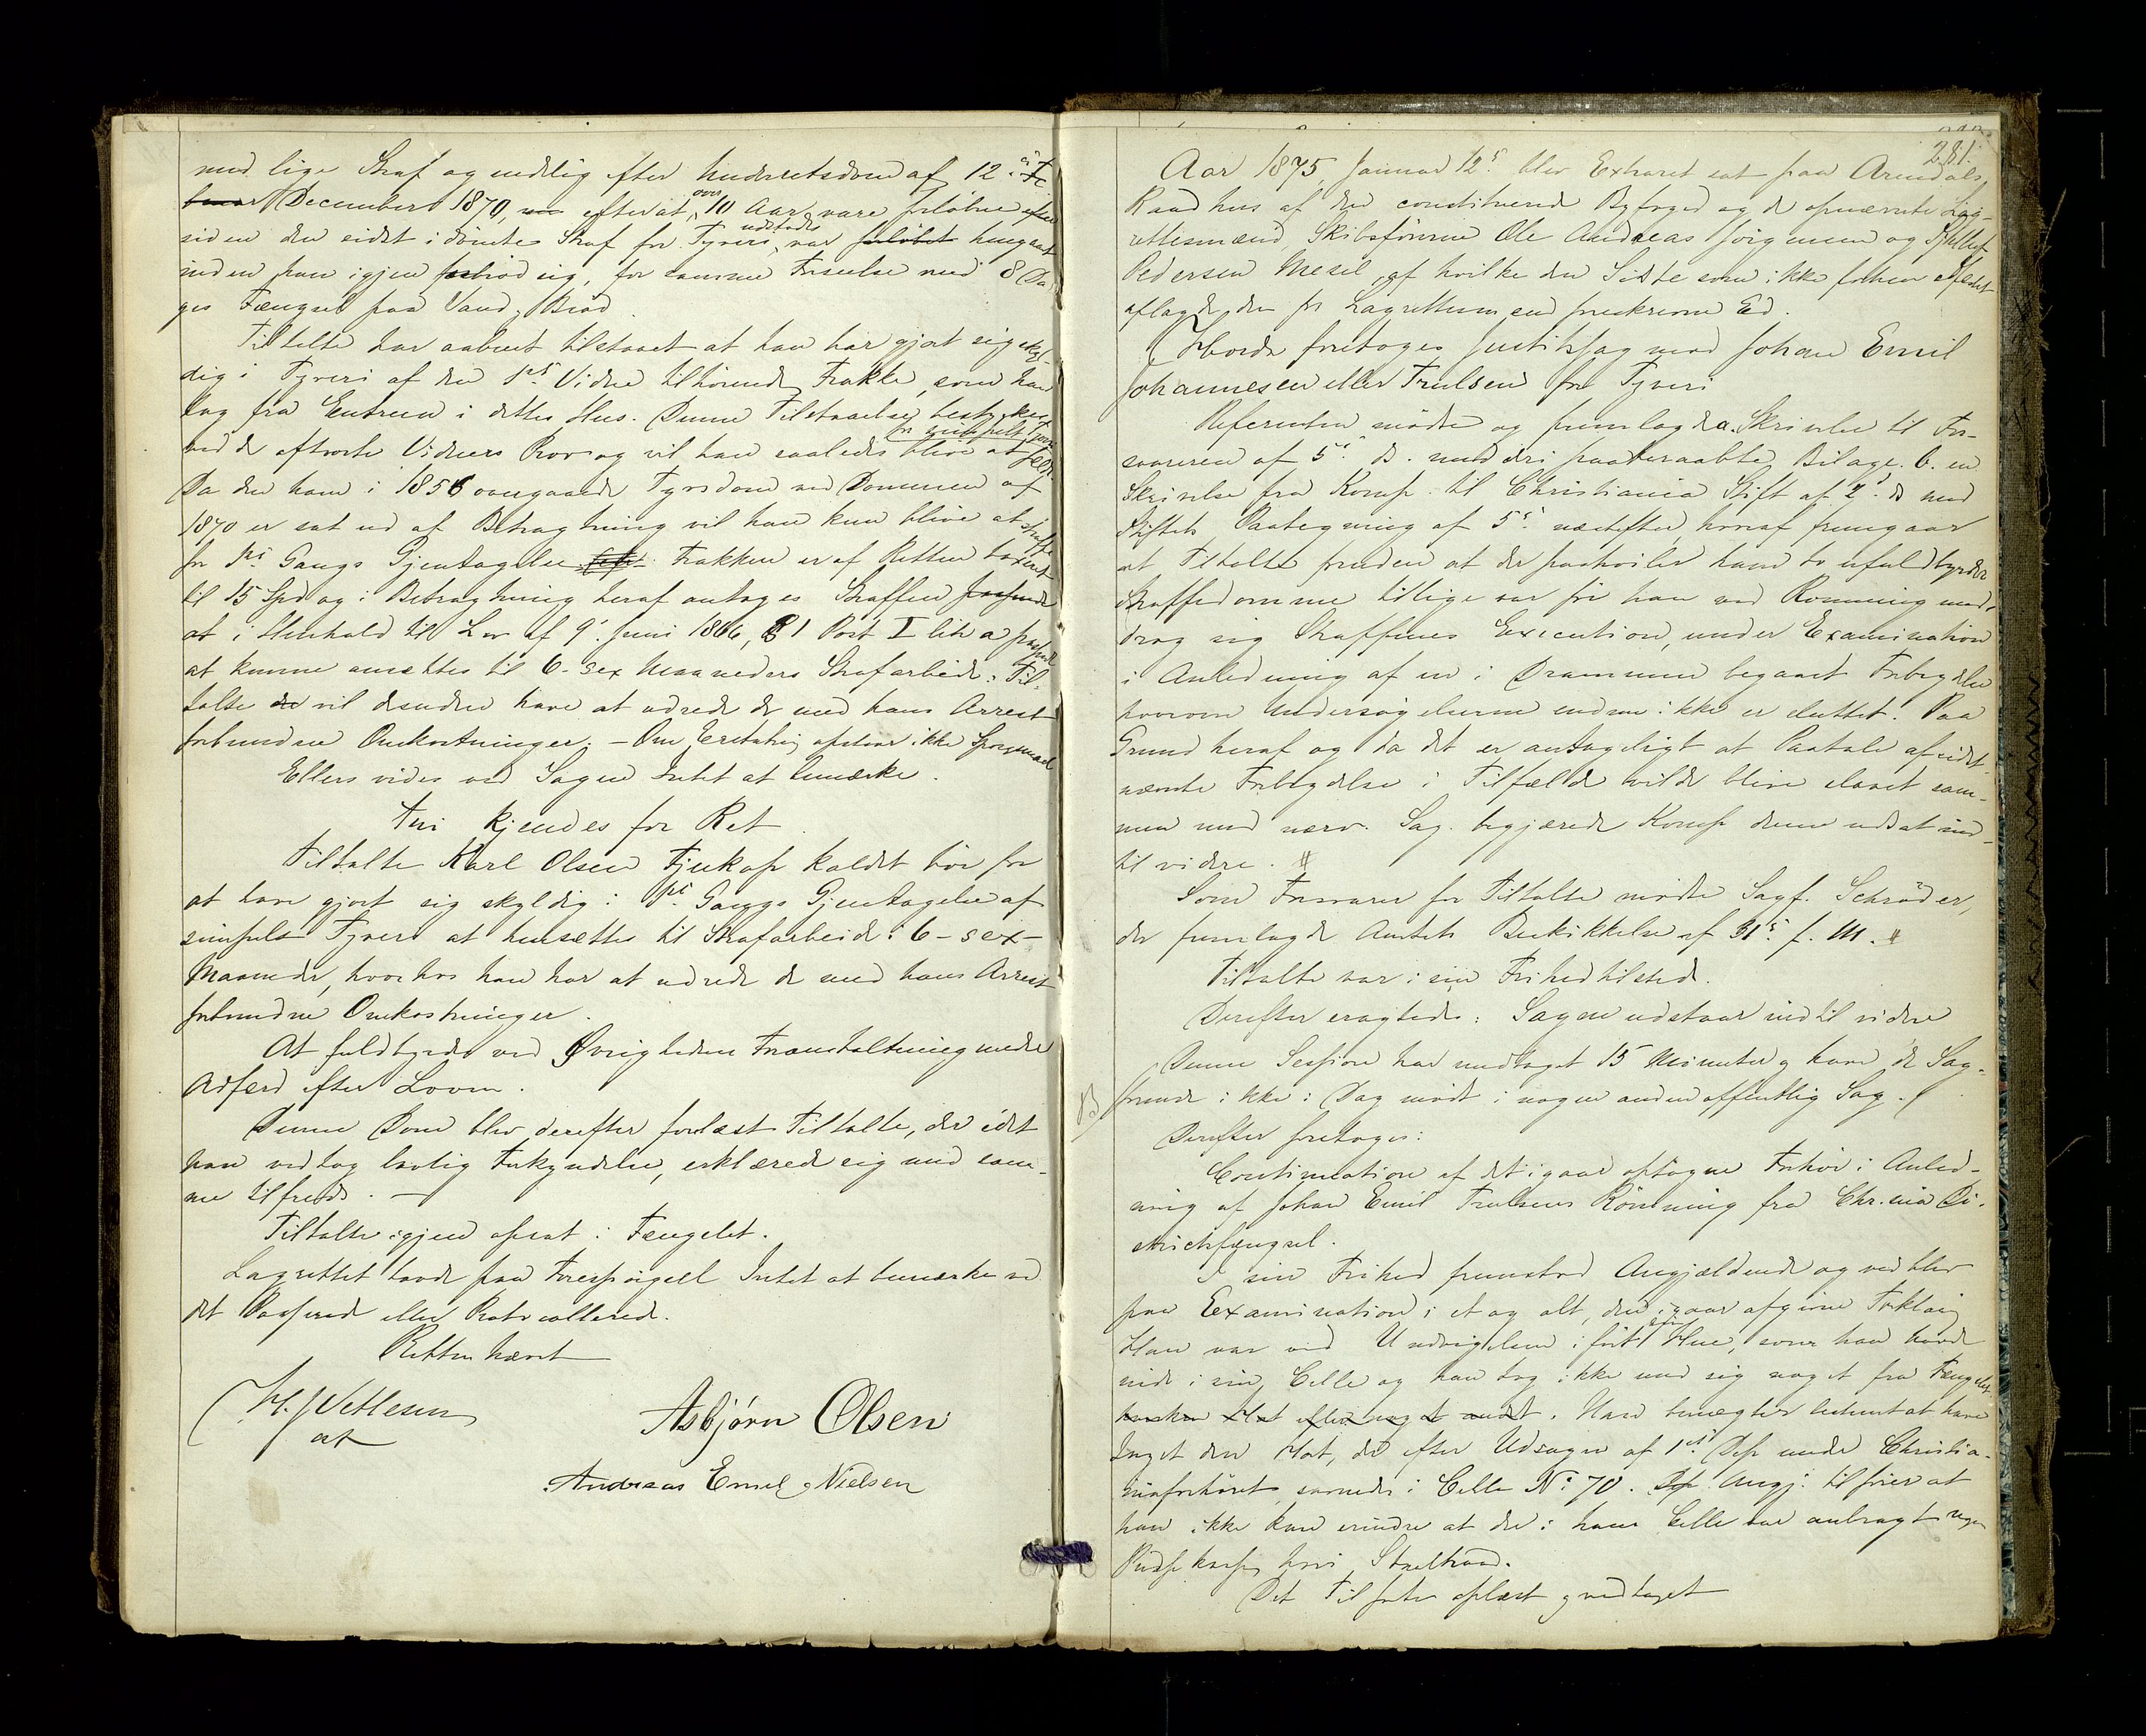 med lige Straf og endelig efter Underretsdom af 12.
December 1870, efterat over 10 Aar vare forløbne efter
siden den sidst idømte Straf for Tyveri, udstodes, var forløbet hengaaet
inden han igjen forbrød sig, for samme Forseelse med 8 Da-
ges Fængsel paa Vand & Brød.
Tiltalte har aabent tilstaaet at han har gjort sig skyl-
dig i Tyveri af den 1ste Vidne tilhørende Frakke, som han
tog fra Entreen i dettes Hus. Denne Tilstaaelse bestyrkes
ved de afhørte Vidners Prov og vil han saaledes blive at fælde for simpelt Tyveri
Da den ham i 1856 overgaaede Tyvsdom ved Dommen af
1870 er sat ud af Betragtning vil han kun blive at straffe
for 1ste Gangs Gjentagelse. Frakken er af Retten taxeret
til 15 Spd og i Betragtning heraf antages Straffen
at i Henhold til Lov af 9. Juni 1866, § 1 Post I litr a passende
at kunne ansættes til 6 - sex Maaneders Strafarbeide. Til-
talte vil desuden have at udrede de med hans Arrest
forbundne Omkostninger. - Om Erstatning opstaar ikke Spørgsmaal
Ellers vides ved Sagen Intet at bemærke.
Thi kjendes for Ret
Tiltalte Karl Olsen Fjukop kaldet bør for
at have gjort sig skyldig i 1ste Gangs Gjentagelse af
simpelt Tyveri at hensættes til Strafarbeide i 6 - sex -
Maaneder, hvorhos han har at udrede de med hans Arrest
forbundne Omkostninger.
At fuldbyrdes ved Øvrighedens Foranstaltning under
Adfærd efter Loven.
Denne Dom blev derefter forlæst Tiltalte, der idet
han vedtog lovlig Forkyndelse, erklærede sig med sam-
me tilfreds. -
Tiltalte igjen afsat i Fængslet.
Lagrettet havde paa Forespørgsel Intet at bemærke ved
det Passerede eller Protocollerede.
Retten hævet
H. J Vetlesen Asbjørn Olsen
at
Andreas Emil Nielsen
281.
Aar 1875, Januar 12te blev Extraret sat paa Arendals
Raadhus af den constituerede Byfoged og de opnævnte Lag-
rettesmænd, Skibsførerne Ole Andreas Jörgensen og
Pedersen af hvilke den Sidste som ikke forhen edfæstet
aflagde den for Lagrettesmænd foreskrevne Ed.
Hvorda foretoges Justitssag mod Johan Emil
Johannesen eller Trulsen for Tyveri
Referenten mødte og fremlagde a. Skrivelse til For-
svareren af 5te ds. med deri paaberaabte Bilage. b. en
Skrivelse fra Komp. til Christiania Stift af 2. ds med
Stiftets Paategning af 5te næstefter, hvoraf fremgaar
at Tiltalte foruden at der paahviler ham to ufuldbyrdede
Straffedomme tillige var før han ved Rømning und-
drog sig Straffenes Execution, under Examination
i Anledning af en i Drammen begaaet Forbrydelse
hvorom Undersøgelserne endnu ikke er sluttet. Paa
Grund heraf og da det er antageligt at Paatale af sidst-
nævnte Forbrydelse i Tilfælde vilde blive slaaet sam-
men med nærv. Sag. begjærede Komp denne udsat ind-
til videre.
Som Forsvarer for Tiltalte mødte Sagf. Schrøder,
der fremlagde Amtets Beskikkelse af 31te f. M.
Tiltalte var i sin Frihed tilstede.
Derefter eragtedes: Sagen udstaar indtil videre
Denne Session har medtaget 15 Minuter & have de Sag-
førende ikke i Dag mødt i nogen anden offentlig Sag.
Derefter foretoges:
Continuation af det igaar optagne Forhør i Anled-
ning af Johan Emil Trulsens Rømning fra Chr.nia Di-
strictsfængsel.
I sin Frihed fremstod Angjældende og vedblev
paa Examination i et og alt, den igaar afgivne Forklaring
Han var ved Undvigelsen iført sin Hue, som han havde
inde i sin Celle og han tog ikke med sig noget fra Fængslet
hverken Hat eller noget andet. Han benægter bestemt at have
taget den Hat, der efter Udsagn af 1ste Dep under Christia-
niaforhøret, savnedes i Celle No 70. Angj. tilføier at
han ikke kan erindre at der i hans Celle var anbragt nogen
Staaltraad.
Det Tilførte oplæst & vedtaget